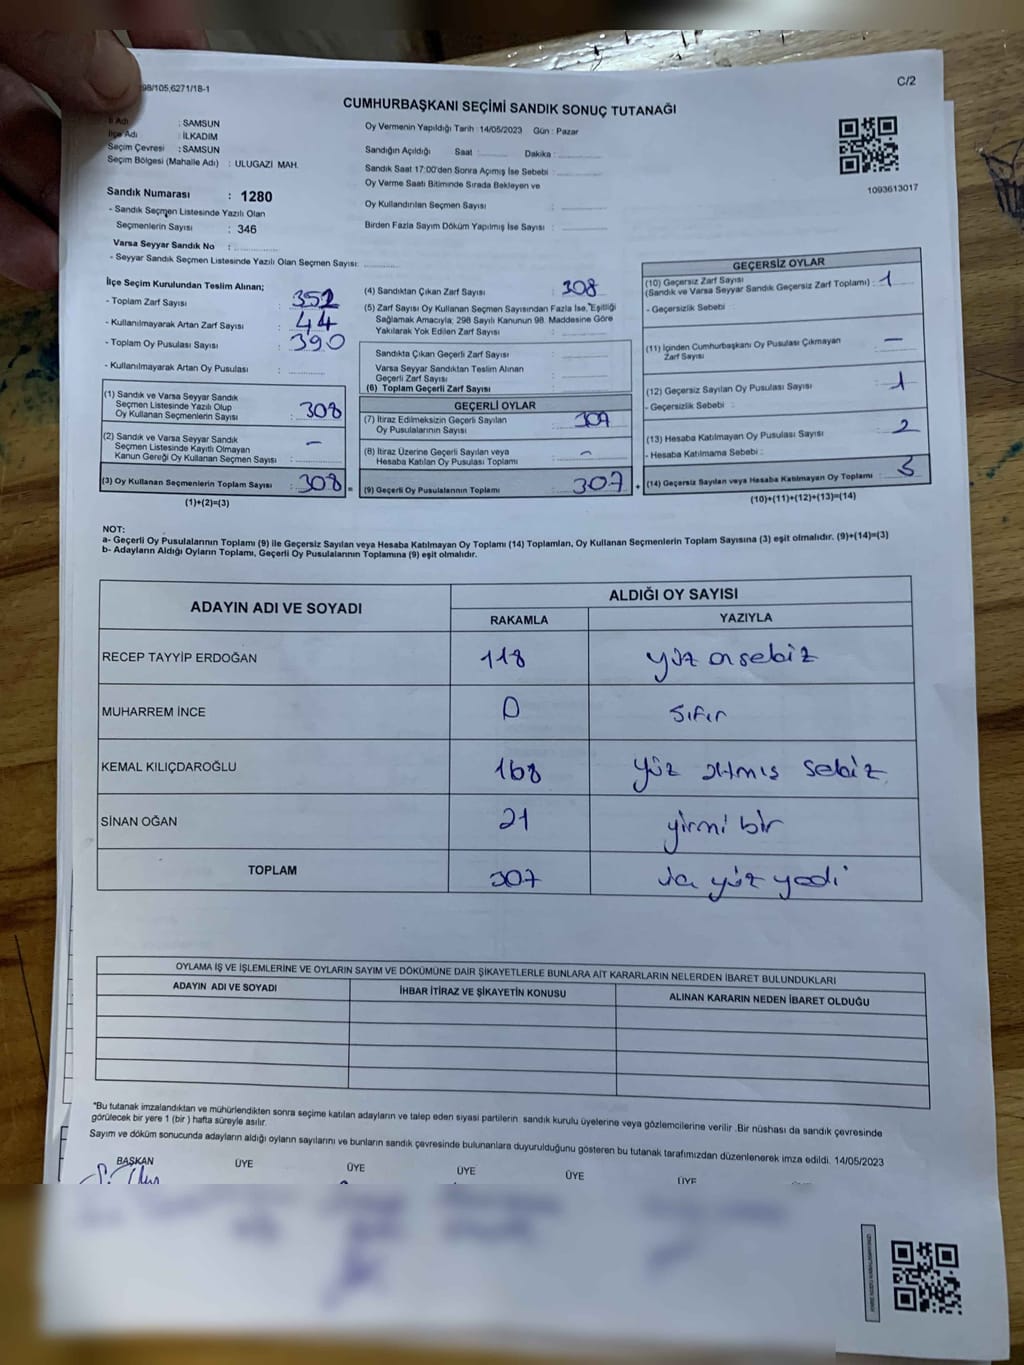 98/105,6271/18-1
C/2
CUMHURBAŞKANI SEÇİMİ SANDIK SONUÇ TUTANAĞI
İl Adı : SAMSUN
İlçe Adı : İLKADIM
Seçim Çevresi : SAMSUN
Seçim Bölgesi (Mahalle Adı) : ULUGAZİ MAH.
Sandık Numarası : 1280
- Sandık Seçmen Listesinde Yazılı Olan
Seçmenlerin Sayısı : 346
Varsa Seyyar Sandık No :
- Seyyar Sandık Seçmen Listesinde Yazılı Olan Seçmen Sayısı:
Oy Vermenin Yapıldığı Tarih :14/05/2023 Gün : Pazar
Sandığın Açıldığı Saat : Dakika :
Sandık Saat 17:00'den Sonra Açımış İse Sebebi :
Oy Varme Saati Bitiminde Sırada Bekleyen ve
Oy Kullandırılan Seçmen Sayısı :
Birden Fazla Sayım Döküm Yapılmış İse Sayısı :
1093613017
İlçe Seçim Kurulundan Teslim Alınan;
- Toplam Zarf Sayısı : 352
- Kullanılmayarak Artan Zarf Sayısı : 44
- Toplam Oy Pusulası Sayısı : 390
- Kullanılmayarak Artan Oy Pusulası :
(1) Sandık ve Varsa Seyyar Sandık
Seçmen Listesinde Yazılı Olup
Oy Kullanan Seçmenlerin Sayısı : 308
(2) Sandık ve Varsa Seyyar Sandık
Seçmen Listesinde Kayıtlı Olmayan
Kanun Gereği Oy Kullanan Seçmen Sayısı : -
(3) Oy Kullanan Seçmenlerin Toplam Sayısı : 308 =
(1)+(2)=(3)
(4) Sandıktan Çıkan Zarf Sayısı : 308
(5) Zarf Sayısı Oy Kullanan Seçmen Sayısından Fazla İse, Eşitliği
Sağlamak Amacıyla; 298 Sayılı Kanunun 98. Maddesine Göre
Yakılarak Yok Edilen Zarf Sayısı :
Sandıkta Çıkan Geçerli Zarf Sayısı :
Varsa Seyyar Sandıktan Teslim Alınan
Geçerli Zarf Sayısı :
(6) Toplam Geçerli Zarf Sayısı :
GEÇERLİ OYLAR
(7) İtiraz Edilmeksizin Geçerli Sayılan
Oy Pusulalarının Sayısı : 307
(8) İtiraz Üzerine Geçerli Sayılan veya
Hesaba Katılan Oy Pusulası Toplamı : -
(9) Geçerli Oy Pusulalarının Toplamı : 307 +
GEÇERSİZ OYLAR
(10) Geçersiz Zarf Sayısı
(Sandık ve Varsa Seyyar Sandık Geçersiz Zarf Toplamı) : 1
- Geçersizlik Sebebi :
(11) İçinden Cumhurbaşkanı Oy Pusulası Çıkmayan
Zarf Sayısı : -
(12) Geçersiz Sayılan Oy Pusulası Sayısı : 1
- Geçersizlik Sebebi :
(13) Hesaba Katılmayan Oy Pusulası Sayısı : 2
- Hesaba Katılmama Sebebi :
(14) Geçersiz Sayılan veya Hesaba Katılmayan Oy Toplamı :
(10)+(11)+(12)+(13)=(14)
NOT:
a- Geçerli Oy Pusulalarının Toplamı (9) ile Geçersiz Sayılan veya Hesaba Katılmayan Oy Toplamı (14) Toplamları, Oy Kullanan Seçmenlerin Toplam Sayısına (3) eşit olmalıdır. (9)+(14)=(3)
b- Adayların Aldığı Oyların Toplamı, Geçerli Oy Pusulalarının Toplamına (9) eşit olmalıdır.
ADAYIN ADI VE SOYADI
ALDIĞI OY SAYISI
RAKAMLA YAZIYLA
RECEP TAYYİP ERDOĞAN 118 yüz onsekiz
MUHARREM İNCE 0 sıfır
KEMAL KILIÇDAROĞLU 168 yüz altmış sekiz
SİNAN OĞAN 21 yirmi bir
TOPLAM 307 yüz yedi
OYLAMA İŞ VE İŞLEMLERİNE VE OYLARIN SAYIM VE DÖKÜMÜNE DAİR ŞİKAYETLERLE BUNLARA AİT KARARLARIN NELERDEN İBARET BULUNDUKLARI
ADAYIN ADI VE SOYADI İHBAR İTİRAZ VE ŞİKAYETİN KONUSU ALINAN KARARIN NEDEN İBARET OLDUĞU
*Bu tutanak imzalandıktan ve mühürlendikten sonra seçime katılan adayların ve talep eden siyasi partilerin sandık kurulu üyelerine veya gözlemcilerine verilir .Bir nüshası da sandık çevresinde
görülecek bir yere 1 (bir ) hafta süreyle asılır.
Sayım ve döküm sonucunda adayların aldığı oyların sayılarını ve bunların sandık çevresinde bulunanlara duyurulduğunu gösteren bu tutanak tarafımızdan düzenlenerek imza edildi. 14/05/2023
BAŞKAN ÜYE ÜYE ÜYE ÜYE ÜYE